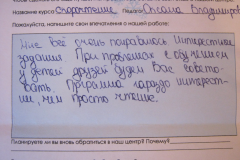 Название курса Скорочтение Педагог Оксана Владимиров
Пожалуйста, напишите свои впечатления о нашей работе:
Мне всё очень понравилось Интерестные
задания При проблемах с обучением
у детей друзей будем Вас совето-
вать. Программа гораздо интерест-
ние, чем просто чтение.
Планируете ли вы вновь обратиться в наш центр? Почему?